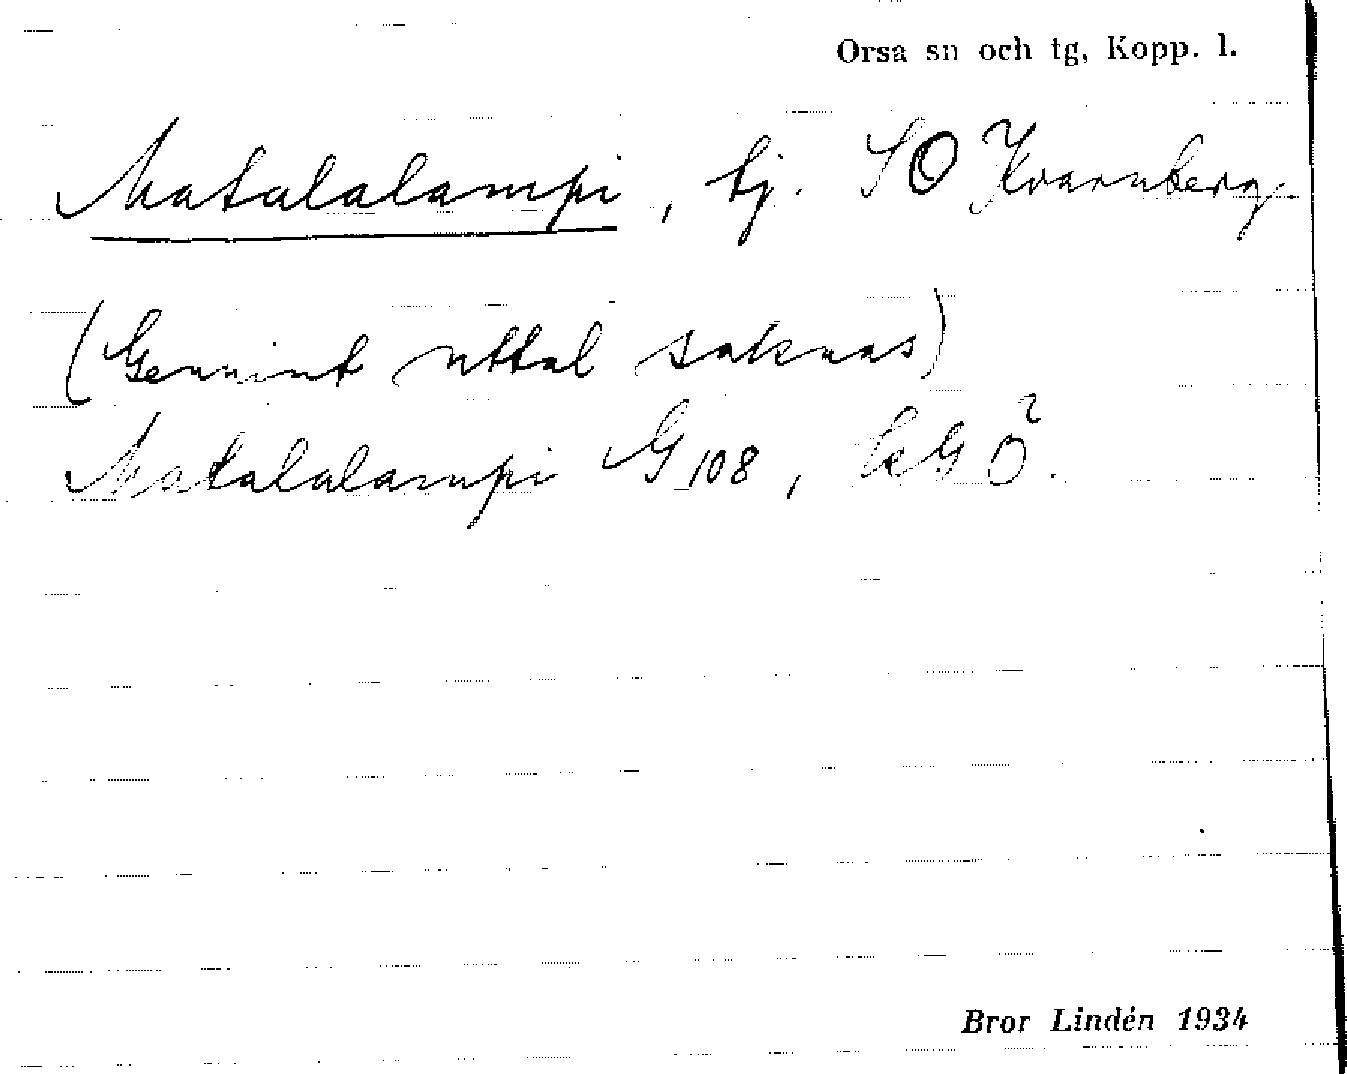 Orsa sn och tg, Kopp. l.
Matalalampi, tj. SO Kvarnberg
(Genuint uttal saknas)
Matalalampi G 108,
Bror Lindén 1934